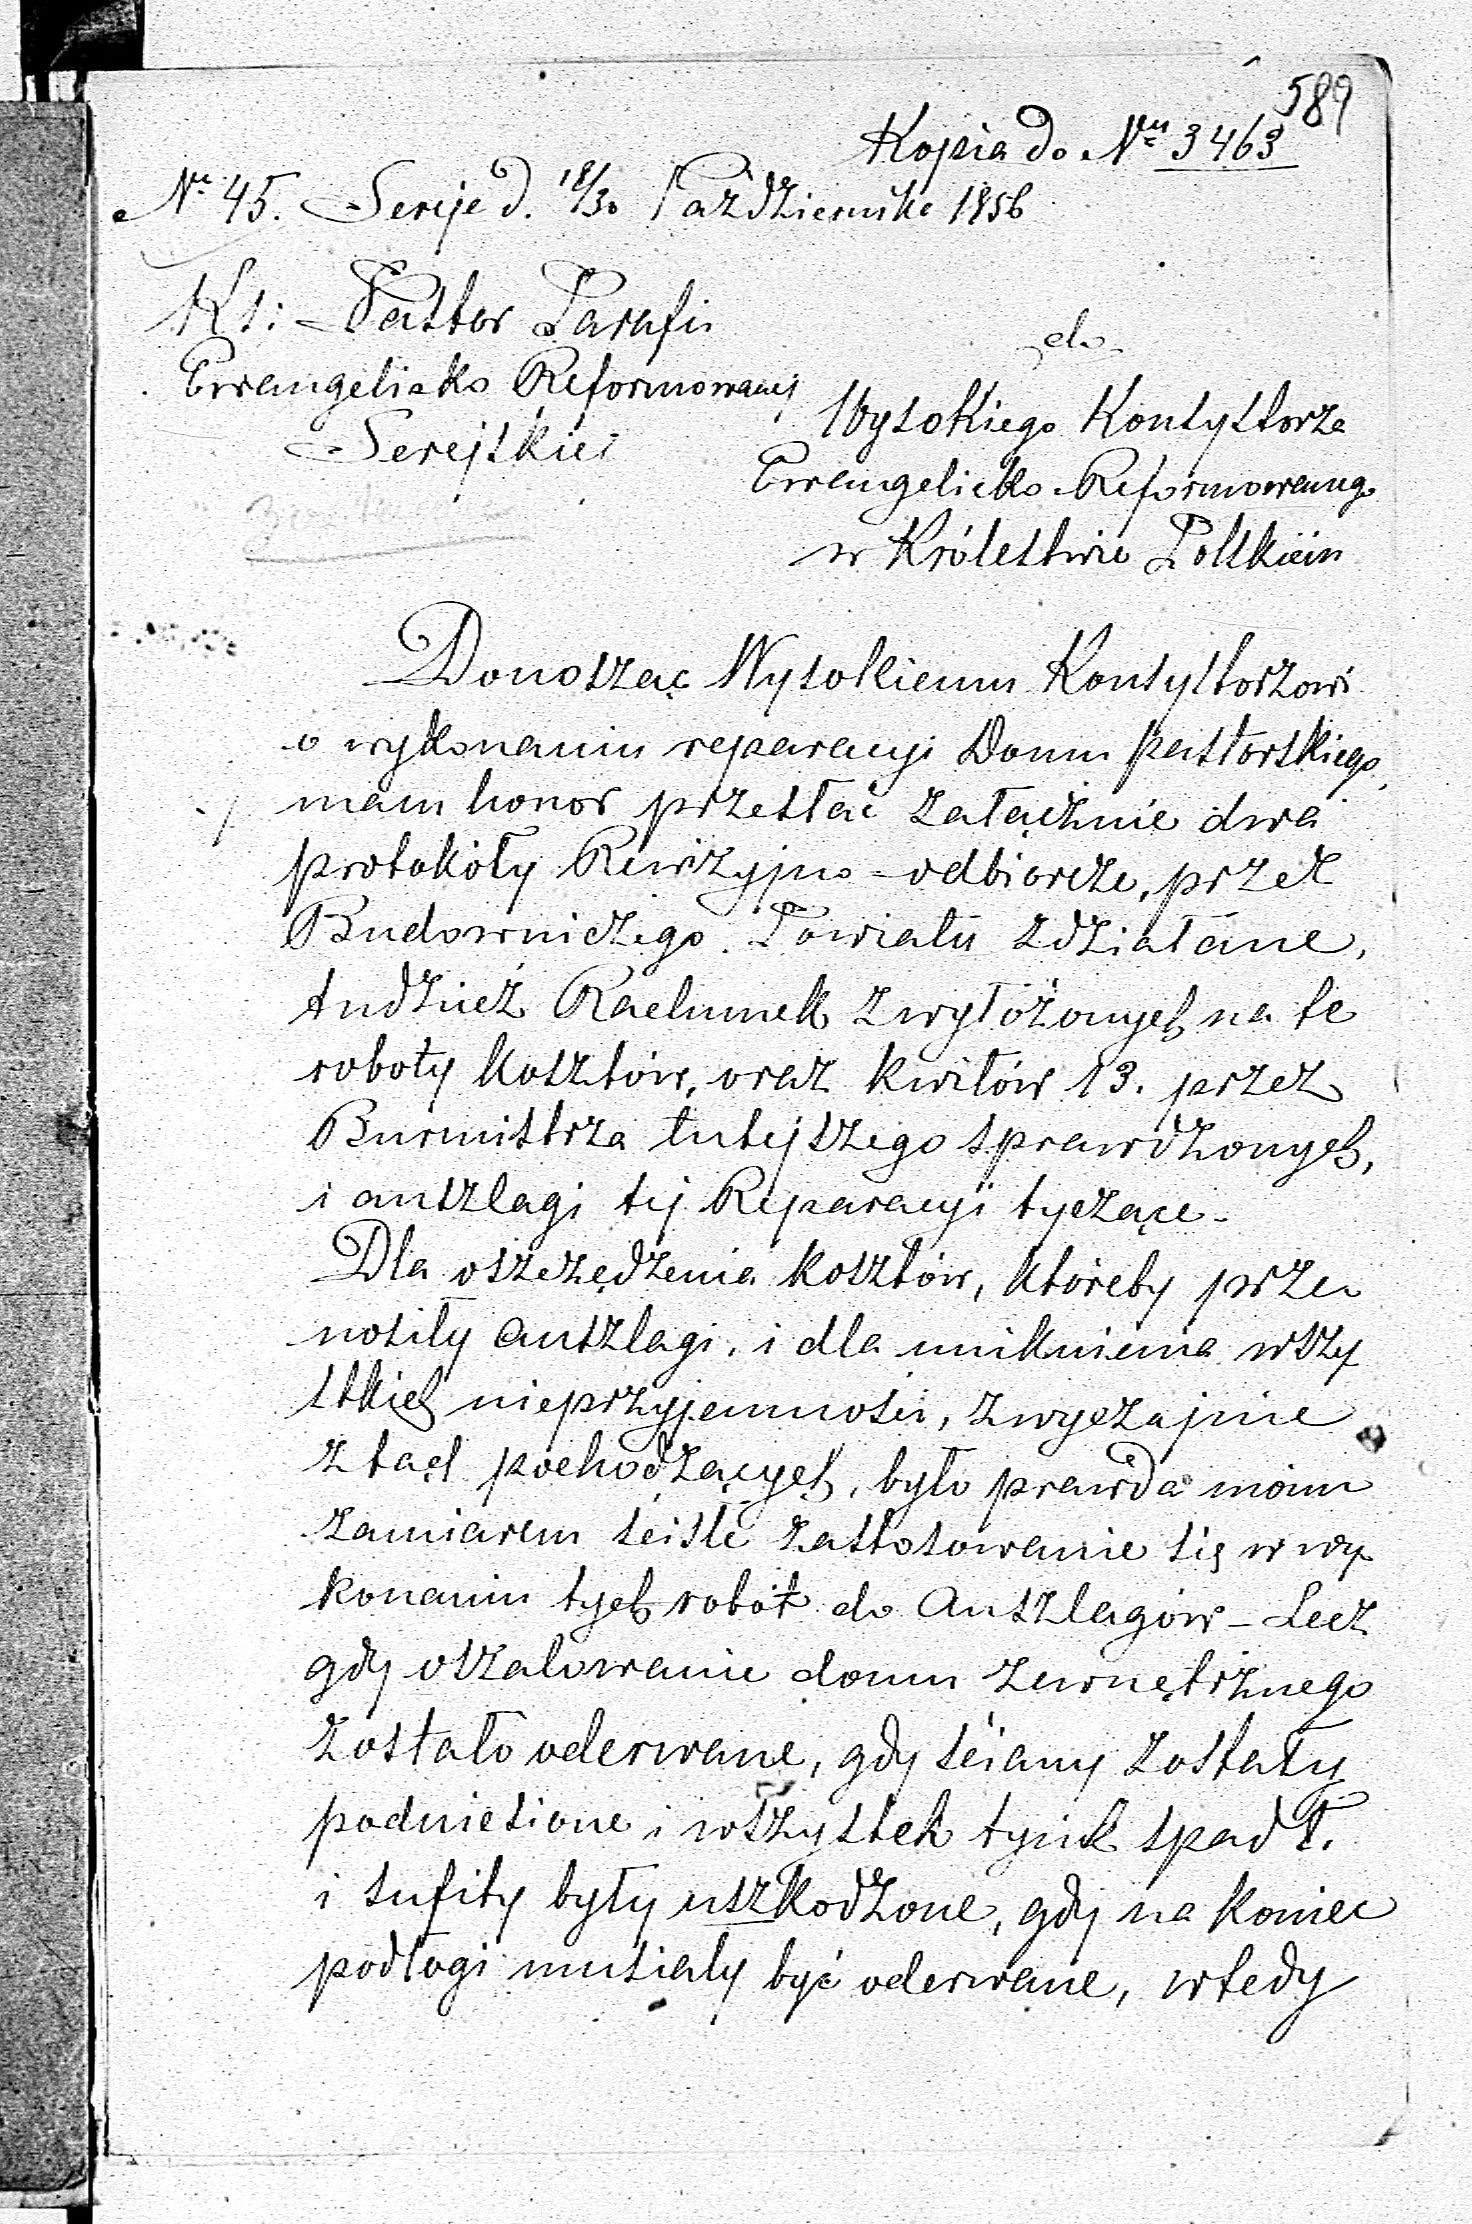 589
Kopia do Nru 3463
Nr 45. Sereje d. 18/30 Października 1856
Ks: Pastor Parafii
Ewangelicko Reformowanej
Serejskiej
do
Wysokiego Konsystorza
Ewangelicko Reformowanego
w Królestwie Polskiem
Donosząc Wysokiemu Konsystorzowi
o wykonaniu reparacyi Domu pastorskiego,
mam honor przesłać załącznie dwa
protokóły Rewizyjno-odbiorcze, przez
Budowniczego Powiatu zdziałane,
tudzież Rachunek z wyłożonych na te
roboty kosztów, oraz kwitów 13. przez
Burmistrza tutejszego sprawdzonych,
i anszlagi tej Reparacyi tyczące -
Dla oszczędzenia kosztów, któreby prze
nosiły anszlagi, i dla uniknienia wszy
stkich nieprzyjemności, zwyczajnie
ztąd pochodzących, było prawda moim
zamiarem ściśle zastosowanie się w wy
konaniu tych robót do Anszlagów - Lecz
gdy oszalowanie domu zewnętrznego
zostało oderwane, gdy ściany zostały
podniesione i wszystek tynk spadł,
i sufity były uszkodzone, gdy na koniec
podłogi musiały być oderwane, wtedy